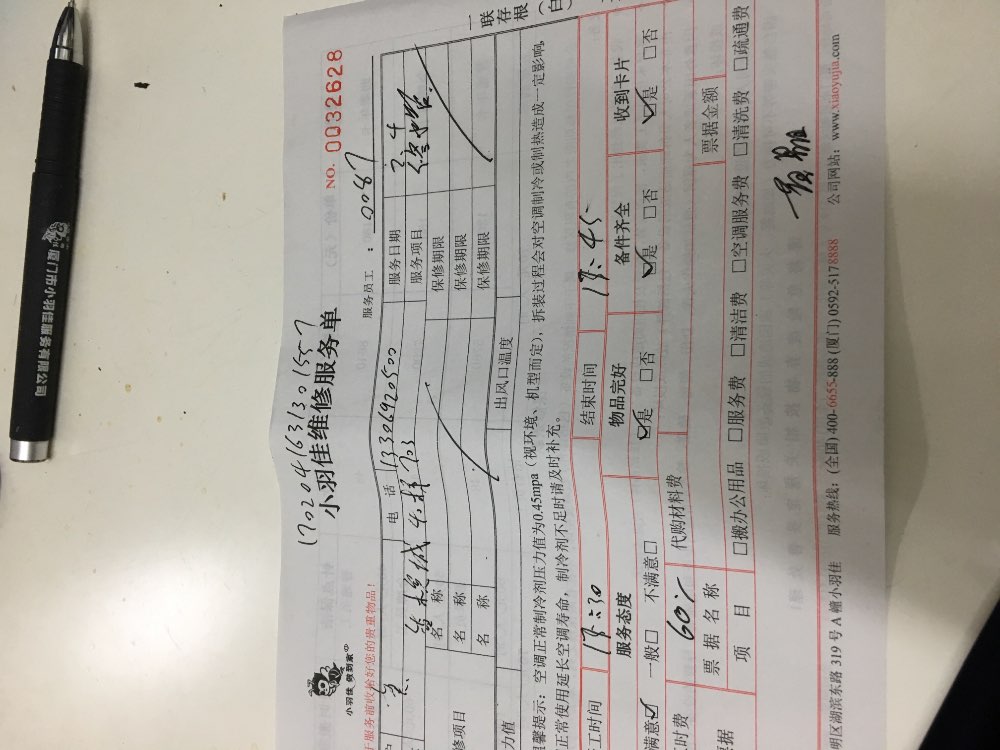 厦门市小羽佳服务有限公司
一联存根(白
NO. 0032628
1702041631301557
小羽佳维修服务单
小羽佳 做到家
服务前收拾好您的贵重物品!
服务员工: 0087
电 话 13306920500
服务日期 2.4
703
服务项目
名 称
保修期限
修项目
名 称
保修期限
名 称
保修期限
力值
出风口温度
馨提示:空调正常制冷剂压力值为0.45mpa(视环境、机型而定),拆装过程会对空调制冷或制热造成一定影响,
正常使用延长空调寿命,制冷剂不足时请及时补充。
工时间 17:30
结束时间 17:45
服务态度
物品完好
备件齐全
收到卡片
满意☑ 一般□ 不满意□
☑是 □否
☑是 □否
☑是 □否
时费 60%
代购材料费
票据
票据名称
票据金额
项 目
□搬办公用品 □服务费 □清洁费 □空调服务费 □清洗费 □疏通费
明区湖滨东路 319 号 A 幢小羽佳 服务热线:(全国) 400-6655-888 (厦门) 0592-5178888 公司网站:www.xiaoyujia.com